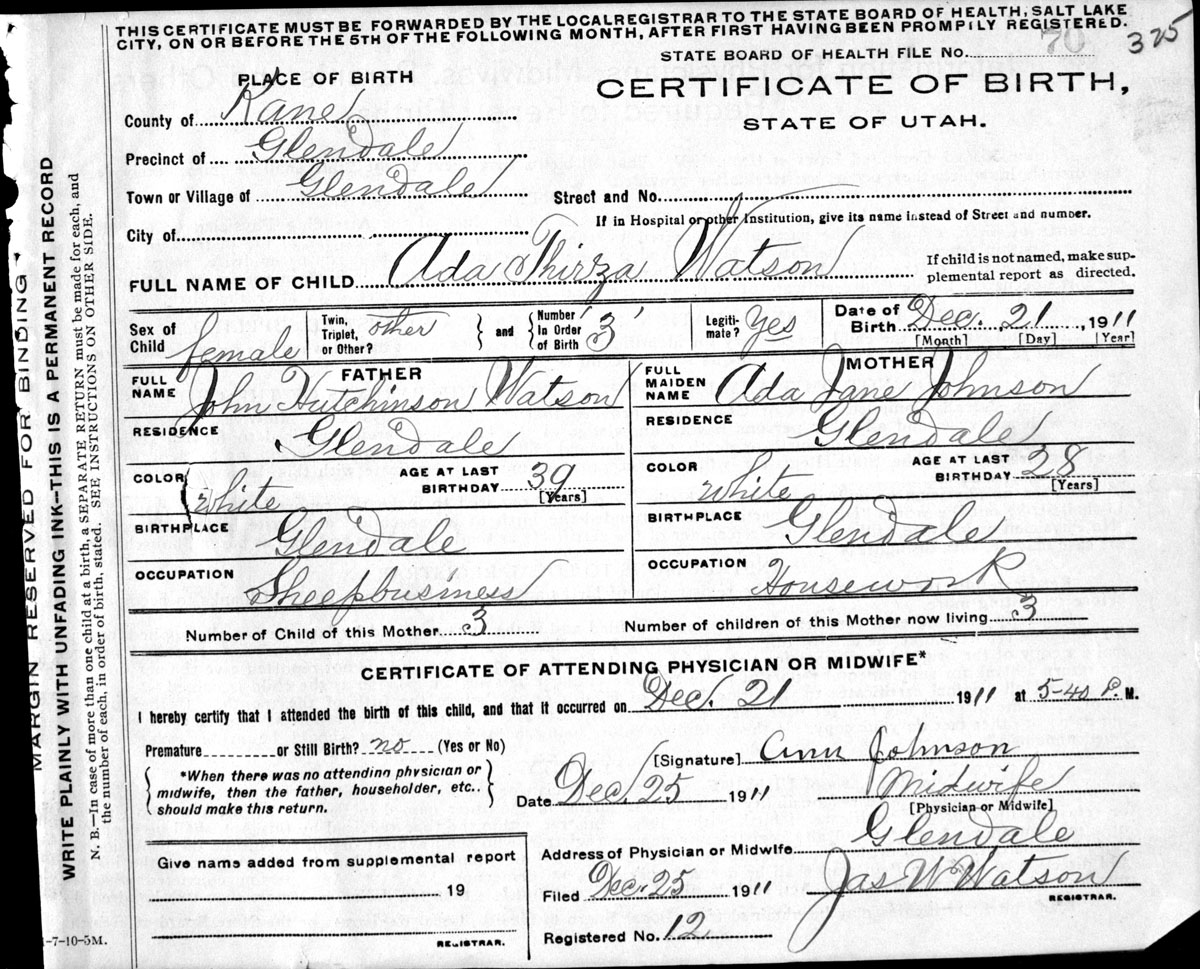 THIS CERTIFICATE MUST BE FORWARDED BY THE LOCAL REGISTRAR TO THE STATE BOARD OF HEALTH, SALT LAKE
CITY, ON OR BEFORE THE 5TH OF THE FOLLOWING MONTH, AFTER FIRST HAVING BEEN PROMPILY REGISTERED.
325
STATE BOARD OF HEALTH FILE NO. 70
PLACE OF BIRTH
CERTIFICATE OF BIRTH,
STATE OF UTAH.
County of Kane
Precinct of Glendale
Town or Village of Glendale Street and No.
If in Hospital or other Institution, give its name instead of Street and number.
City of
FULL NAME OF CHILD Ada Thirza Watson
If child is not named, make sup-
plemental report as directed.
Sex of Child female
Twin, Triplet, or Other? other
and Number In Order of Birth 3
Legiti-mate? Yes
Date of Birth Dec. 21, 1911
[Month] [Day] [Year]
FATHER
FULL NAME John Hutchinson Watson
RESIDENCE Glendale
COLOR white AGE AT LAST BIRTHDAY 39
[Years]
BIRTHPLACE Glendale
OCCUPATION Sheepbusiness
MOTHER
FULL MAIDEN NAME Ada Jane Johnson
RESIDENCE Glendale
COLOR white AGE AT LAST BIRTHDAY 28
[Years]
BIRTHPLACE Glendale
OCCUPATION Housework
Number of Child of this Mother 3 Number of children of this Mother now living 3
CERTIFICATE OF ATTENDING PHYSICIAN OR MIDWIFE*
I hereby certify that I attended the birth of this child, and that it occurred on Dec. 21 1911 at 5-40 P. M.
Premature or Still Birth? no (Yes or No)
*When there was no attending physician or
midwife, then the father, householder, etc.,
should make this return.
[Signature] Ann Johnson
Date Dec. 25 1911 Midwife
[Physician or Midwife]
Address of Physician or Midwife Glendale
Filed Dec. 25 1911 Jas W Watson
REGISTRAR.
Registered No. 12
Give name added from supplemental report
19
REGISTRAR.
MARGIN RESERVED FOR BINDING
WRITE PLAINLY WITH UNFADING INK—THIS IS A PERMANENT RECORD
N. B.—In case of more than one child at a birth, a SEPARATE RETURN must be made for each, and
the number of each, in order of birth, stated. SEE INSTRUCTIONS ON OTHER SIDE.
-7-10-5M.